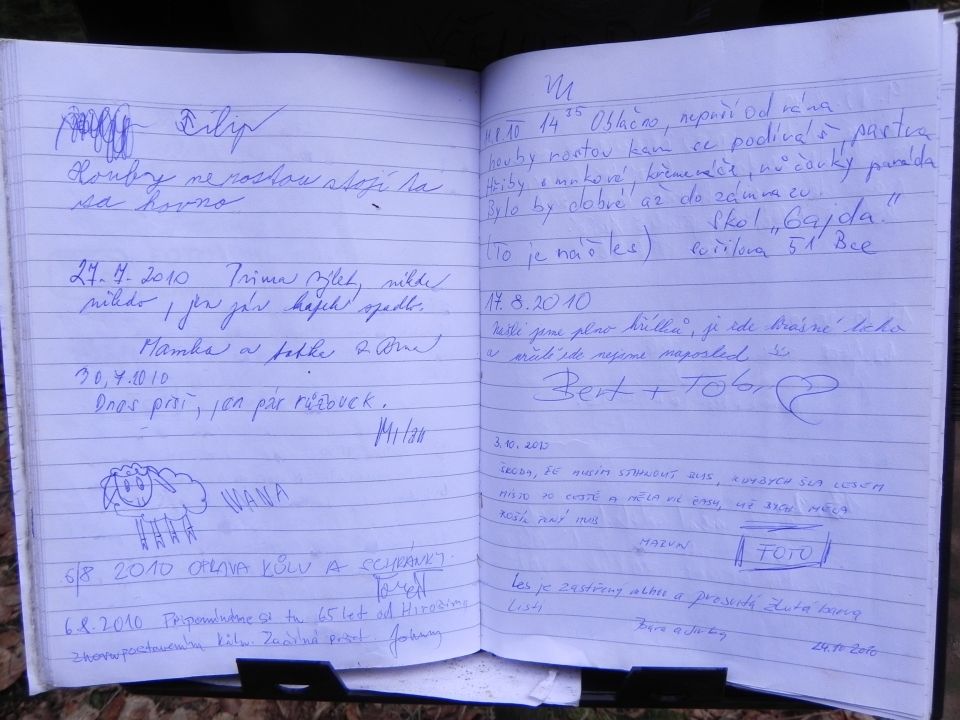 Filip
Houby nerostou stojí to
za hovno
27.7.2010 Prima výlet, nikde
nikdo, jen pár kapek spadlo.
Mamka a taťka z Brna
30.7.2010
Dnes prší, jen pár růžovek.
Milan
IVANA
6/8 2010 OPRAVA KŮLU A SCHRÁNKY.
6.8.2010 Připomínáme si tu 65 let od Hirošimy
znovupostavením kůlu. Začíná pršet. Johnny
11.8.10 14 35 Oblačno, neprší od rána
houby rostou kam se podíváš, pastva
Hřiby smrkové, křemenáče, paráda
Bylo by dobré až do zámrazu.
Skol „Gajda."
(To je náš les) 51 Bce
17.8.2010
Našli jsme plno hříbků, je zde krásné ticho
a určitě zde nejsme naposled
Bert + Tob
3.10.2010
ŠKODA, ŽE MUSÍM STIHNOUT BUS, KDYBYCH ŠLA LESEM
MÍSTO PO CESTĚ A MĚLA VÍC ČASU, UŽ BYCH MĚLA
KOŠÍK PLNÝ HUB
FOTO
Les je zastřený mlhou a prosvítá žlutá barva
listí
24.10.2010